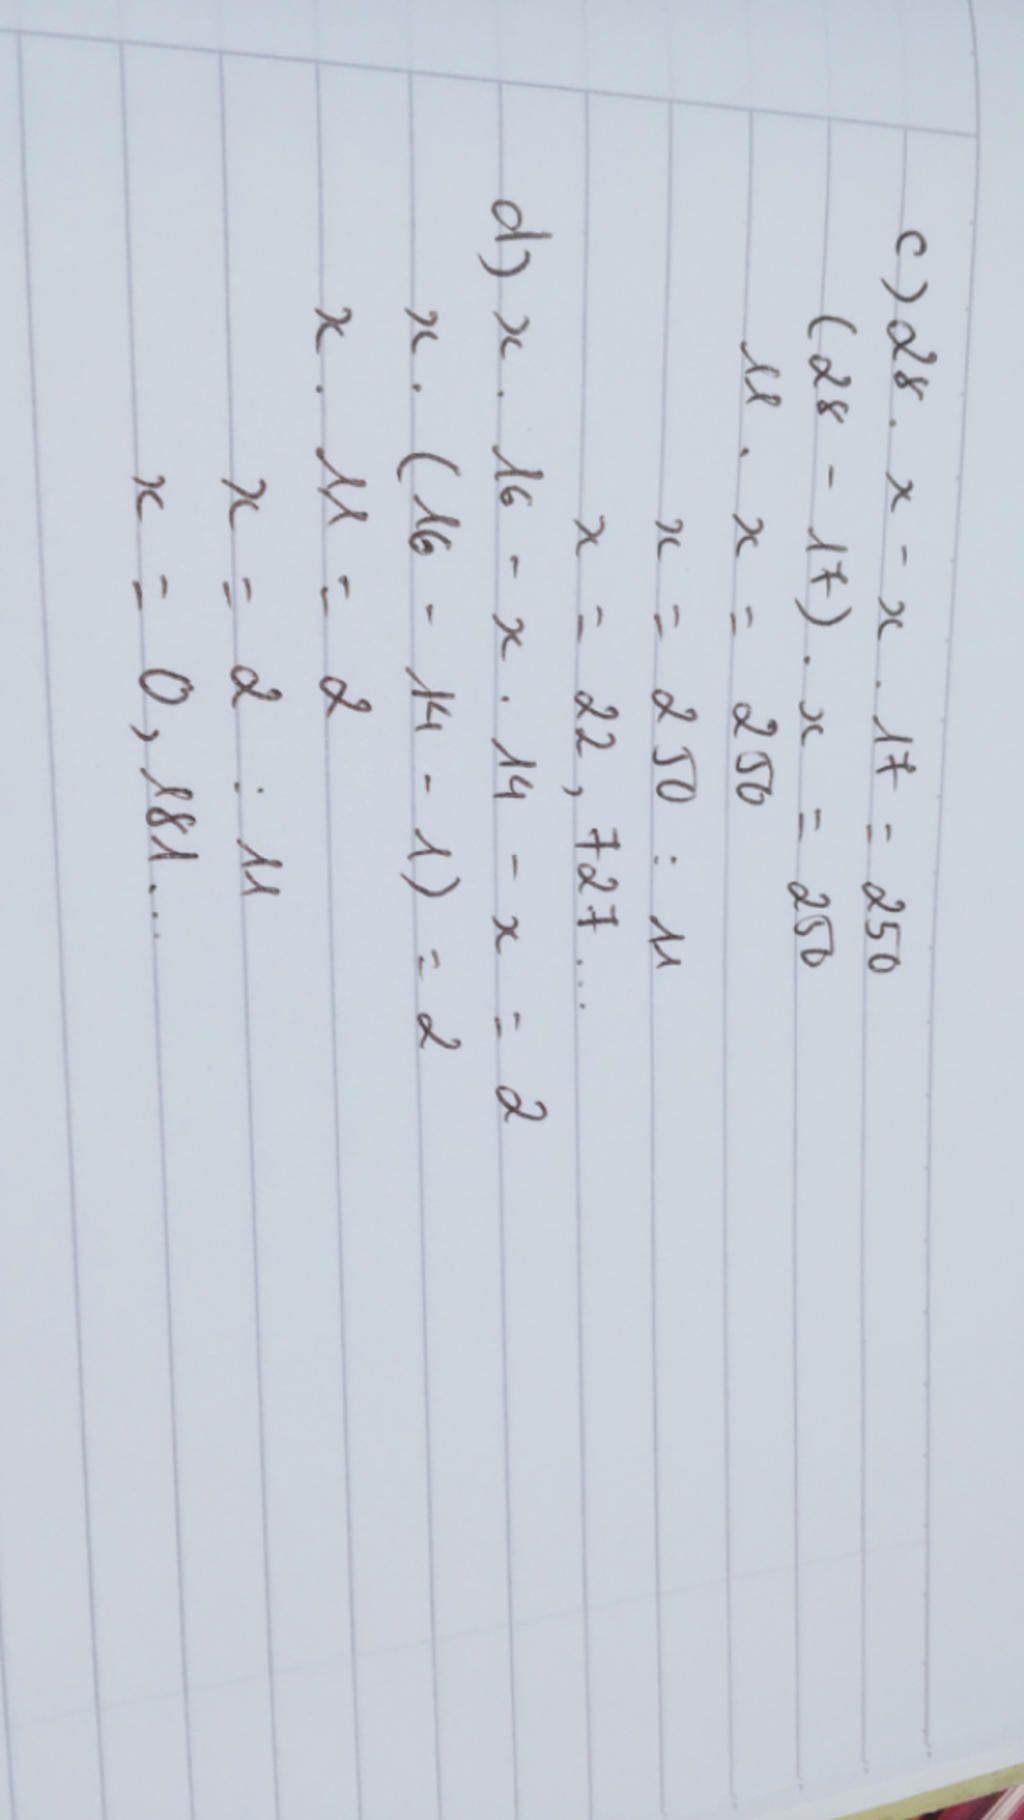 c) 28 . x - x . 17 = 250
(28 - 17) . x = 250
11 . x = 250
x = 250 : 11
x = 22,727...
d) x . 16 - x . 14 - x = 2
x . (16 - 14 - 1) = 2
x . 11 = 2
x = 2 : 11
x = 0,181...